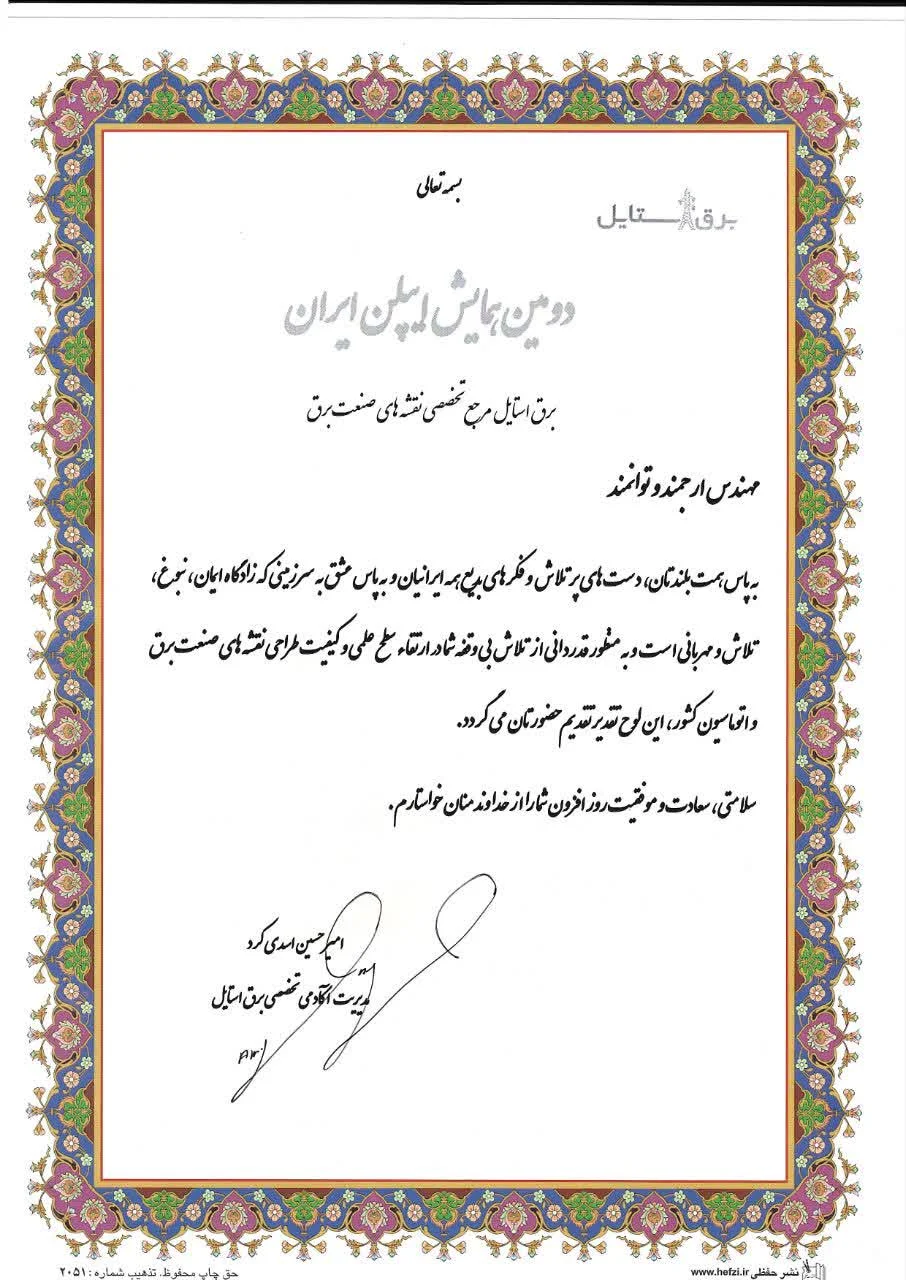 بسمه تعالی
برق استایل
دومین همایش ایپلن ایران
برق استایل مرجع تخصصی نقشه های صنعت برق
مهندس ارجمند و توانمند
به پاس همت بلندتان، دست های پر تلاش و فکرهای بدیع همه ایرانیان و به پاس عشق به سرزمینی که زادگاه ایمان، نبوغ،
تلاش و مهربانی است و به منظور قدردانی از تلاش بی وقفه شما در ارتقاء سطح علمی و کیفیت طراحی نقشه های صنعت برق
و اتوماسیون کشور، این لوح تقدیر تقدیم حضورتان می گردد.
سلامتی، سعادت و موفقیت روز افزون شما را از خداوند منان خواستارم.
امیرحسین اسدی کرد
مدیریت آکادمی تخصصی برق استایل
نشر حفظی www.hefzi.ir
حق چاپ محفوظ. تذهیب شماره: ۲۰۵۱